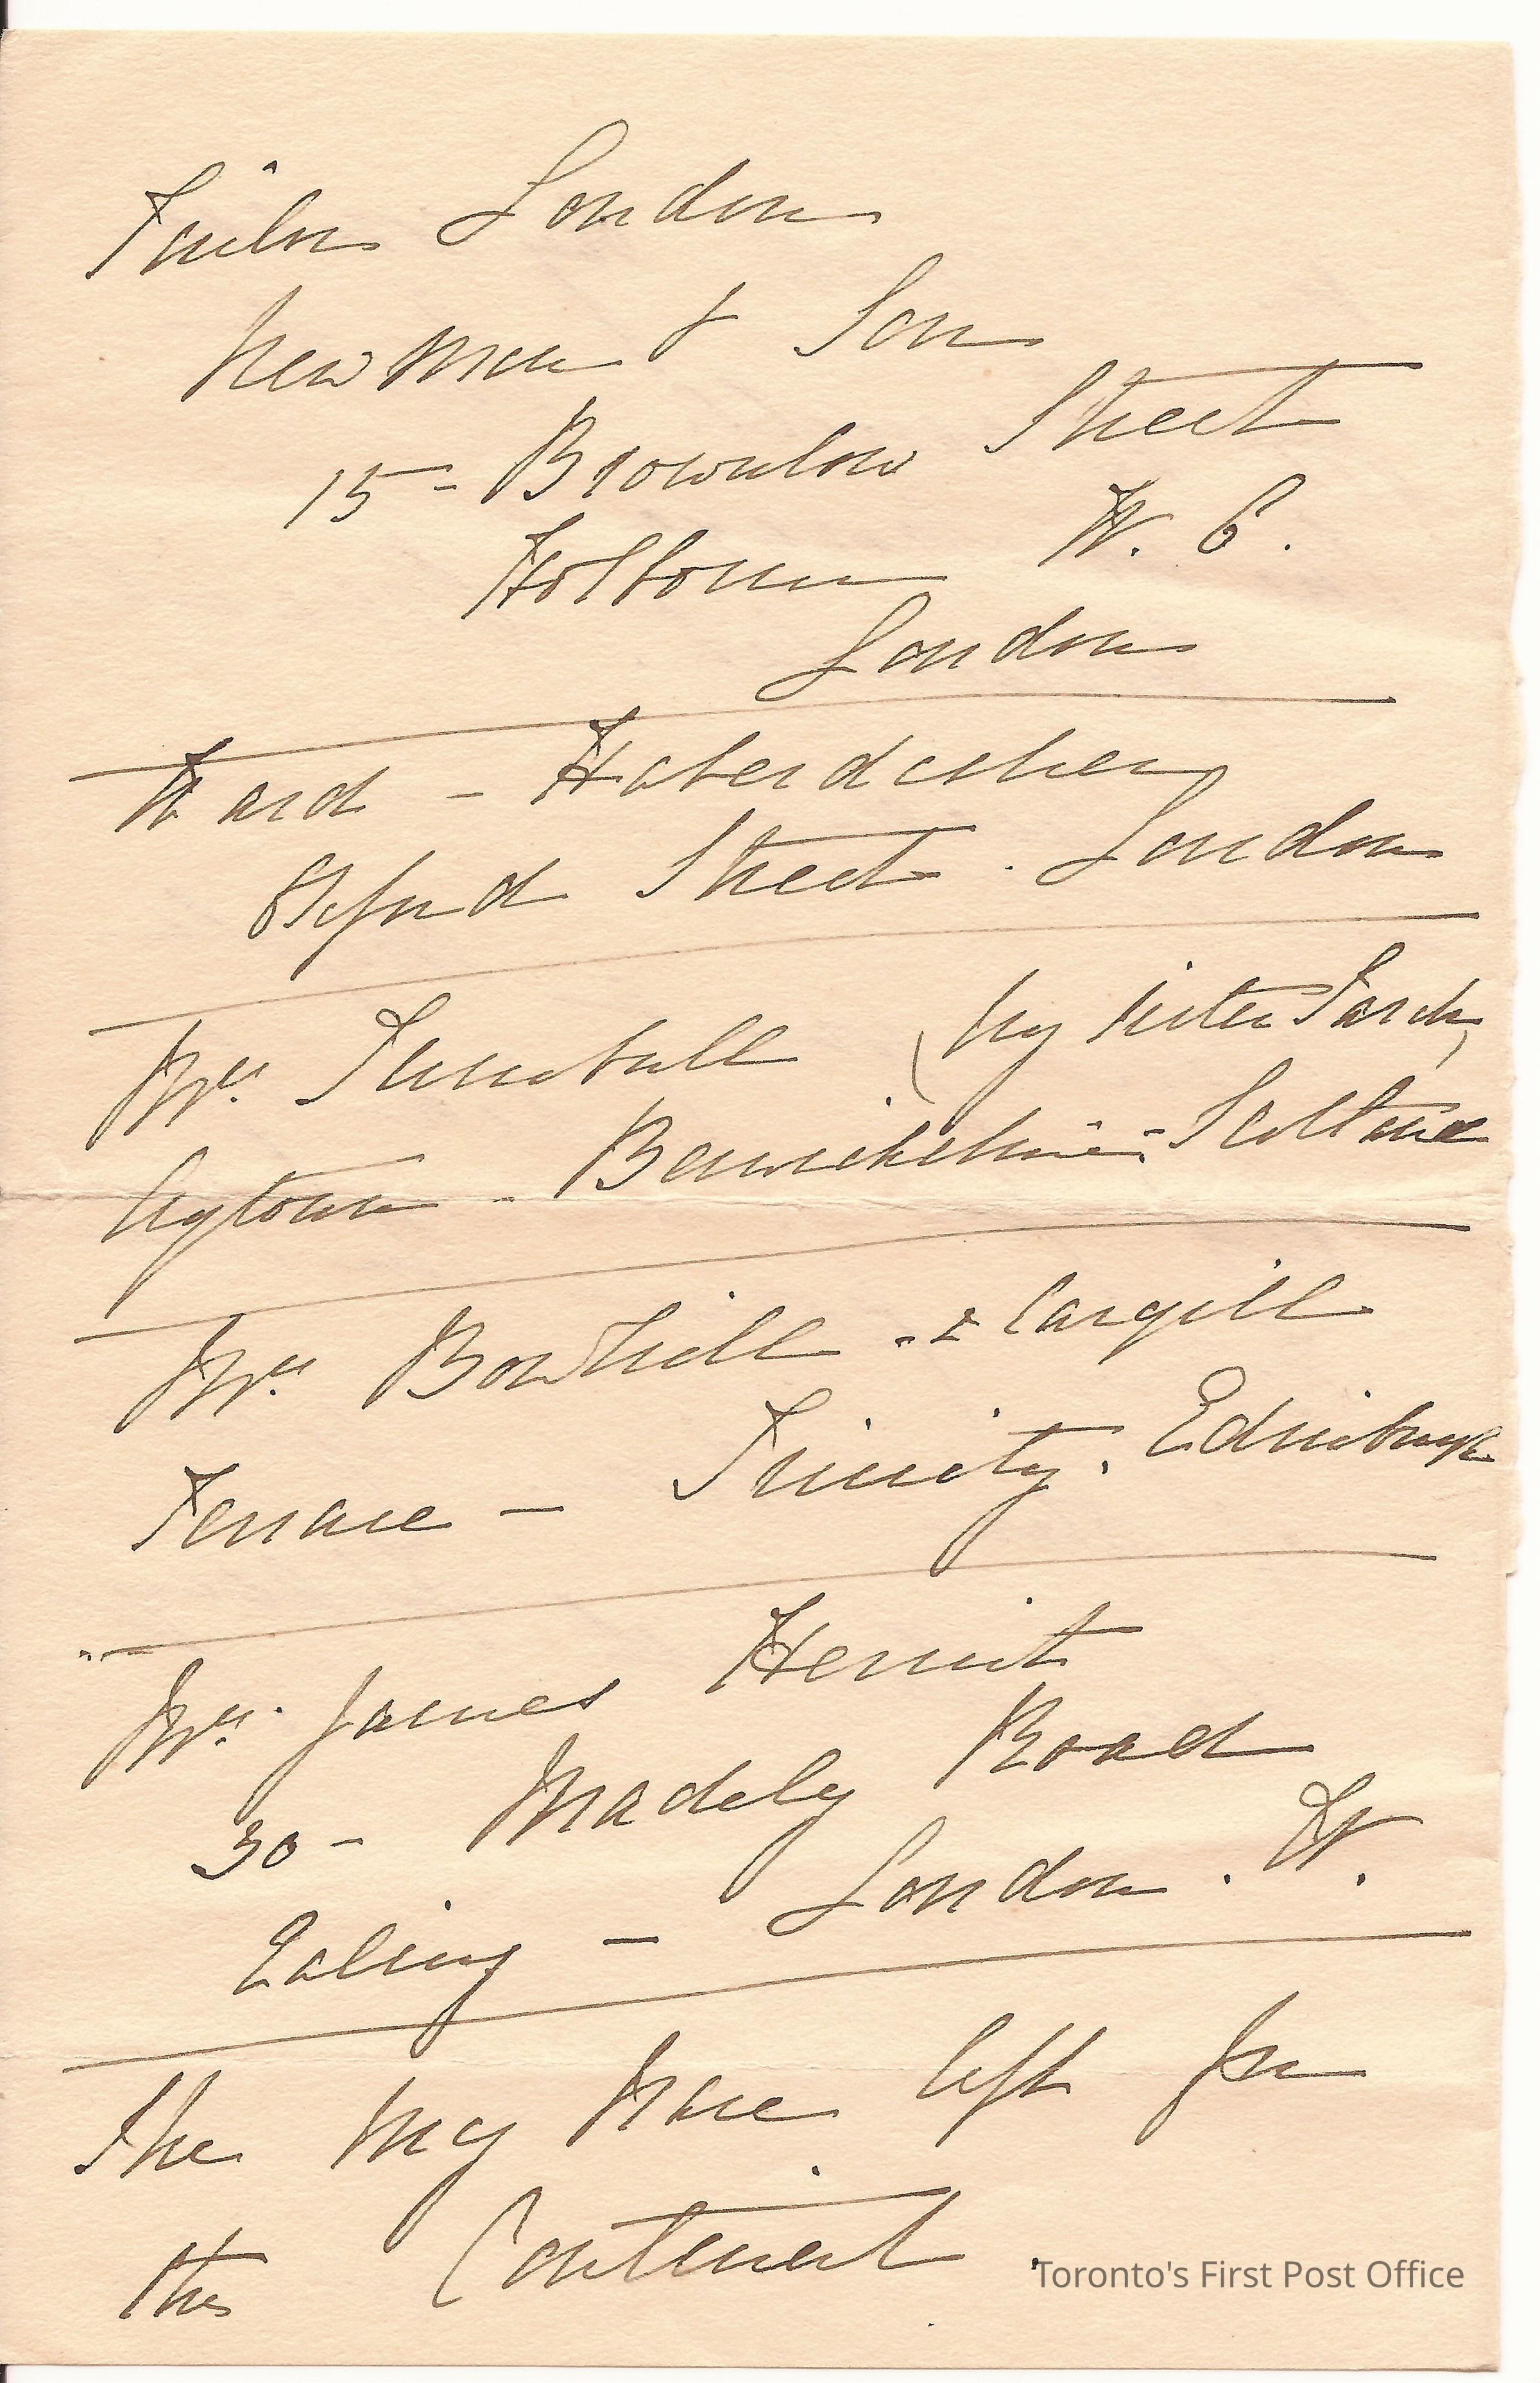 Tailor London
Newman & Son
15 - Brownlow Street
Holborn W. C.
London
Ward - Haberdashery
Oxford Street. London
Mrs. Turnbull (my sister Sarah,
Ayton - Berwickshire - Scotland
Mrs. Bowhill - 2 Cargill
Terrace - Trinity. Edinburgh
Mrs. James Herriot
30 - Madely Road
Ealing - London. W.
The may have left for
the Continent.
Toronto's First Post Office